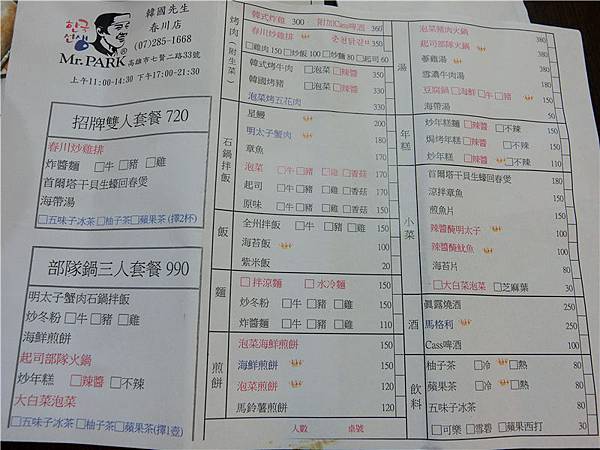 한국
선생
Mr.PARK
韓國先生
春川店
(07)285-1668
高雄市七賢二路33號
上午11:00-14:30 下午17:00-21:30
招牌雙人套餐 720
春川炒雞排
炸醬麵 □牛 □豬 □雞
首爾塔干貝生蠔回春煲
海帶湯
□五味子冰茶□柚子茶□蘋果茶(擇2杯)
部隊鍋三人套餐 990
明太子蟹肉石鍋拌飯
炒冬粉 □牛 □豬 □雞
海鮮煎餅
起司部隊火鍋
炒年糕 □辣醬 □不辣
大白菜泡菜
□五味子冰茶□柚子茶□蘋果茶(擇1壺)
烤肉(附生菜)
韓式炸雞 300 附加Cass啤酒 360
春川炒雞排 춘천닭갈비 350
□雞肉150 □炒飯100 □炒麵80 □起司60
韓式烤牛肉 □泡菜 □辣醬 350
韓國烤豬 □泡菜 □辣醬 330
泡菜烤五花肉 330
石鍋拌飯
星鰻 200
明太子蟹肉 180
章魚 170
泡菜 □牛 □豬 □雞 □香菇 170
起司 □牛 □豬 □雞 □香菇 170
原味 □牛 □豬 □雞 □香菇 150
飯
全州拌飯 □牛 □豬 □雞 150
海苔飯 100
紫米飯 20
麵
□拌涼麵 □水冷麵 160
炒冬粉 □牛 □豬 □雞 150
炸醬麵 □牛 □豬 □雞 110
煎餅
泡菜海鮮煎餅 150
海鮮煎餅 150
泡菜煎餅 120
馬鈴薯煎餅 120
人數 桌號
湯
泡菜豬肉火鍋 380
起司部隊火鍋 380
蔘雞湯 350
雪濃牛肉湯 350
豆腐鍋 □海鮮 □牛 □豬
海帶湯
年糕
炒年糕麵 □辣醬 □不辣 150
焗烤年糕 □辣醬 □不辣 150
炒年糕 □辣醬 □不辣 110
小菜
首爾塔干貝生蠔回春煲 180
涼拌章魚 150
煎魚片 150
辣醬醃明太子 100
辣醬醃魷魚 100
海苔片 80
□大白菜泡菜 □芝麻葉 30
酒
真露燒酒 250
馬格利 250
Cass啤酒 100
飲料
柚子茶 □冷 □熱 80
蘋果茶 □冷 □熱 80
五味子冰茶 80
□可樂 □雪碧 □蘋果西打 30